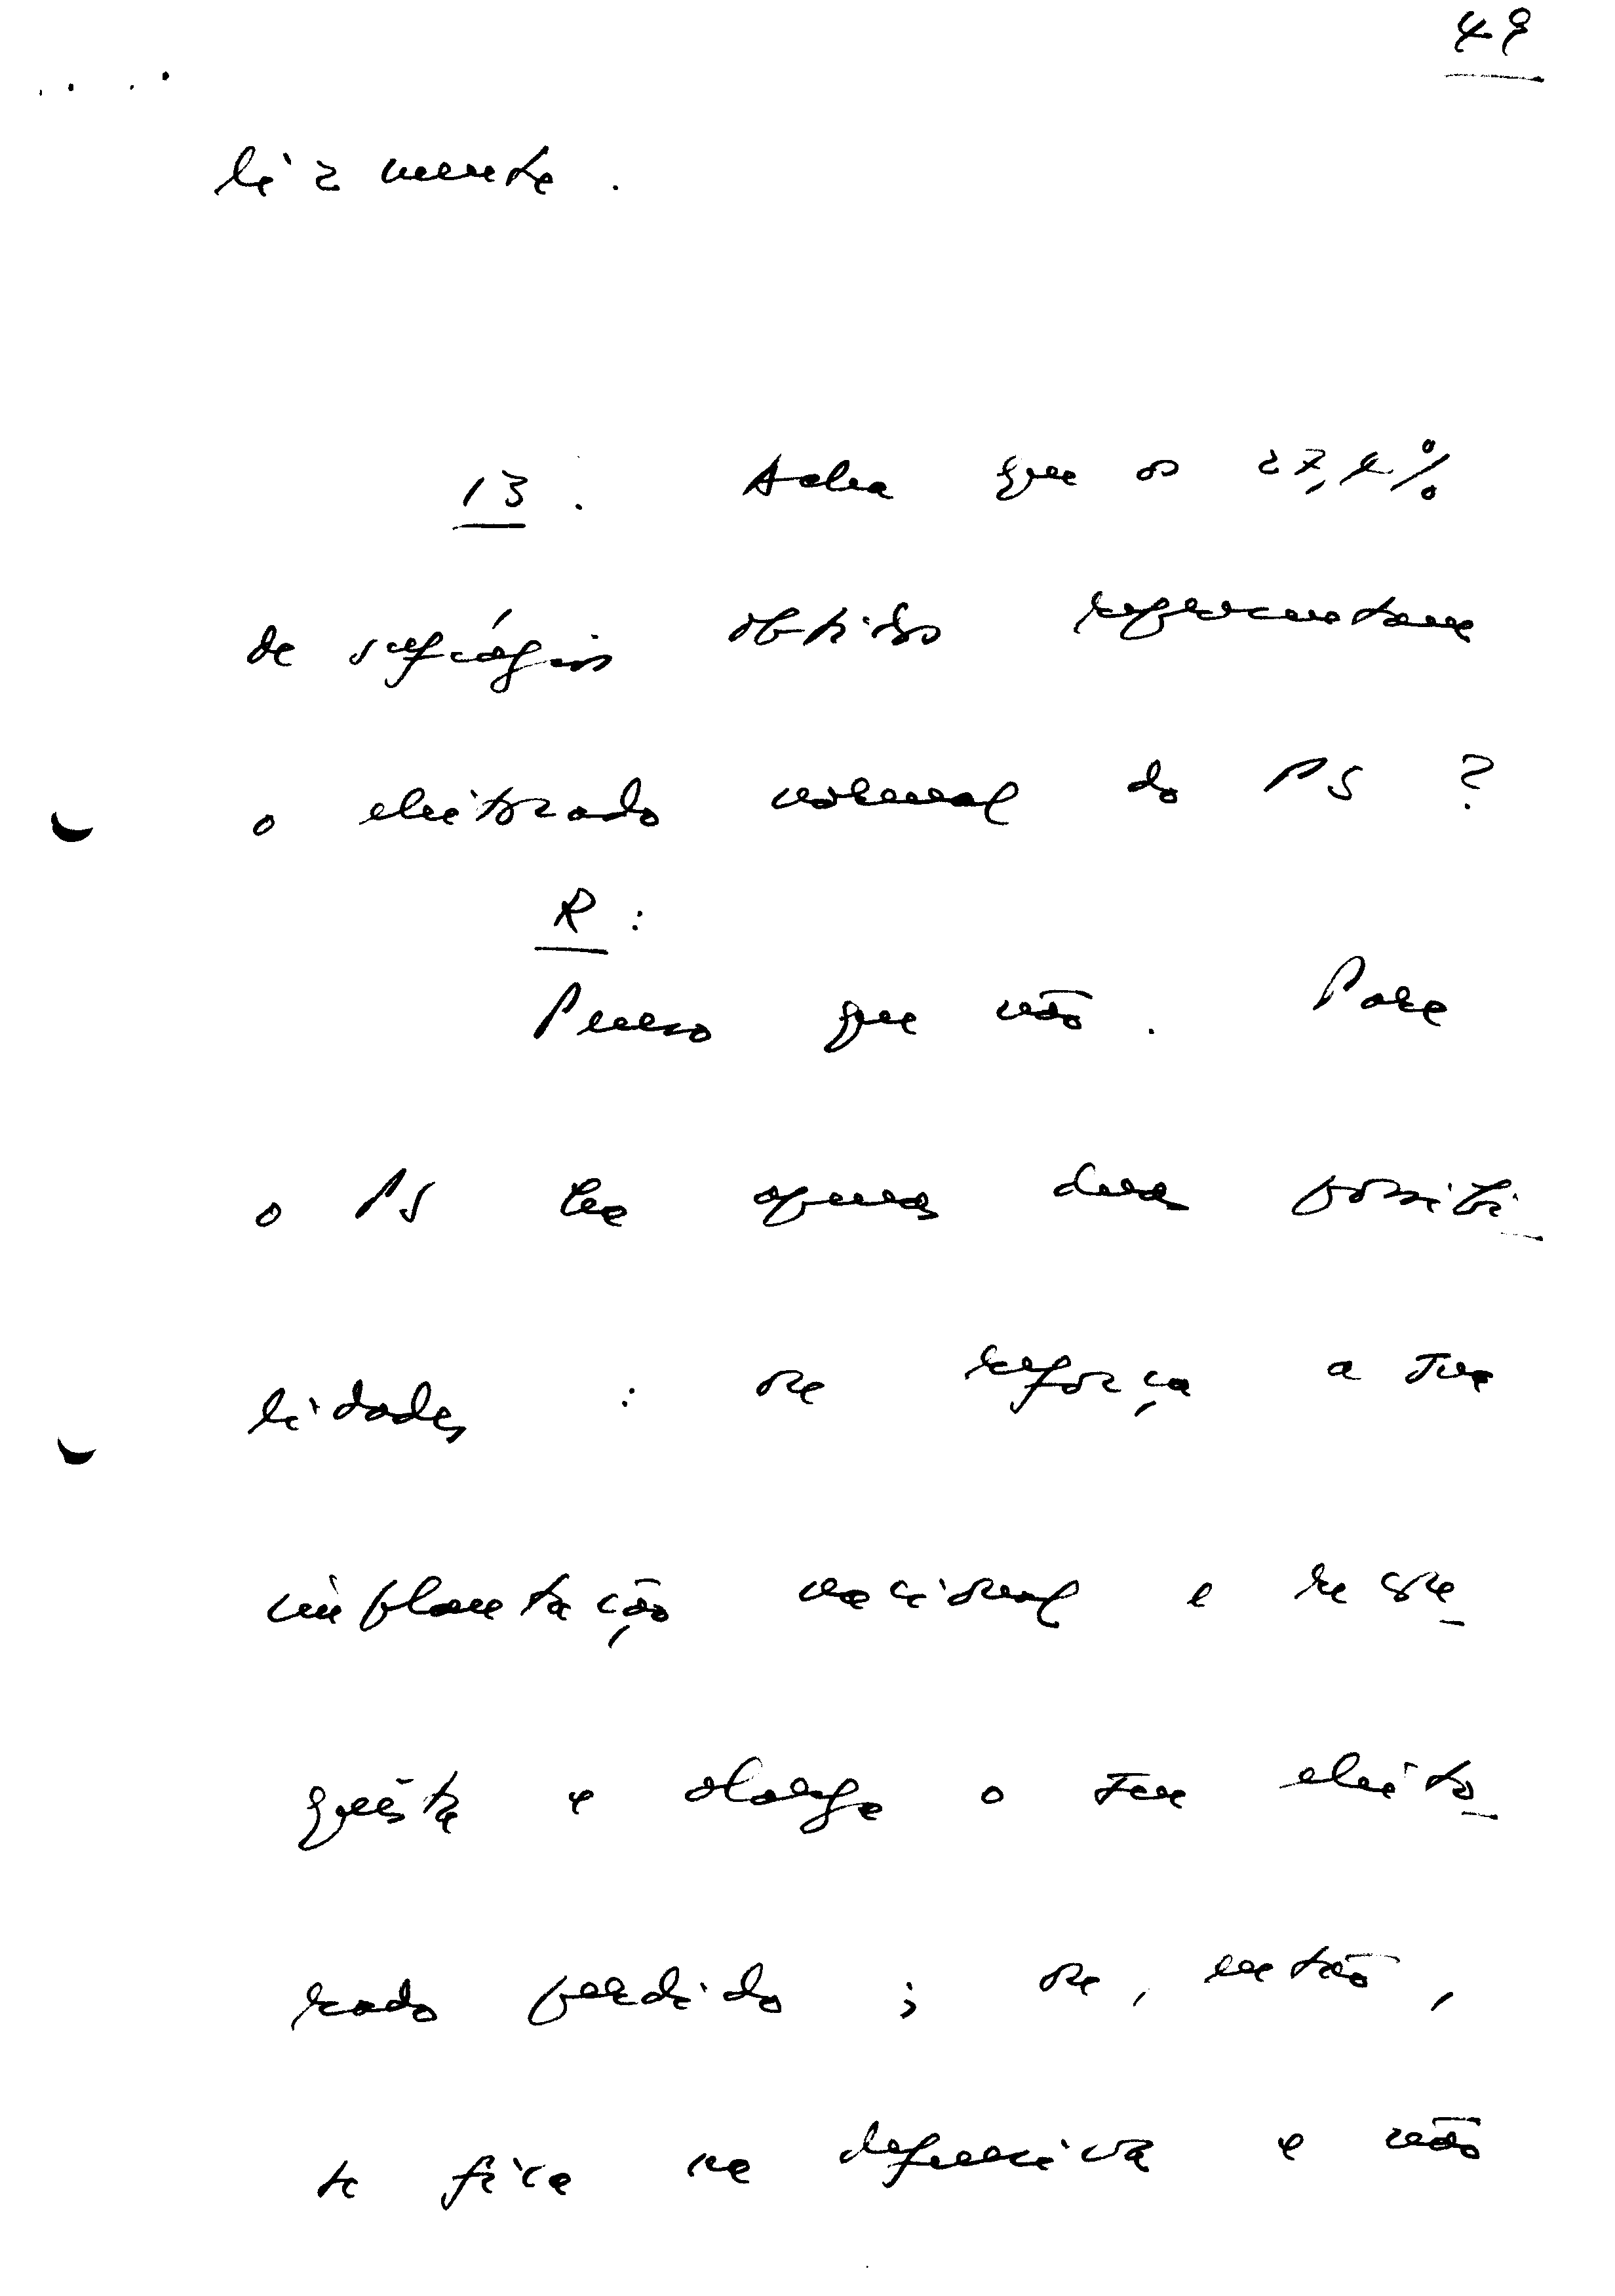 49
liàmente.
13. Acha que os 27,4%
de sufrágios obtidos representam
o eleitorado normal do PS ?
R :
Penso que não. Para
o PS há apenas duas possibi-
lidades : ou reforça a sua
implantação nacional e recon-
quista e alarga o seu eleito-
rado perdido ; ou, então,
se fica na defensiva e não